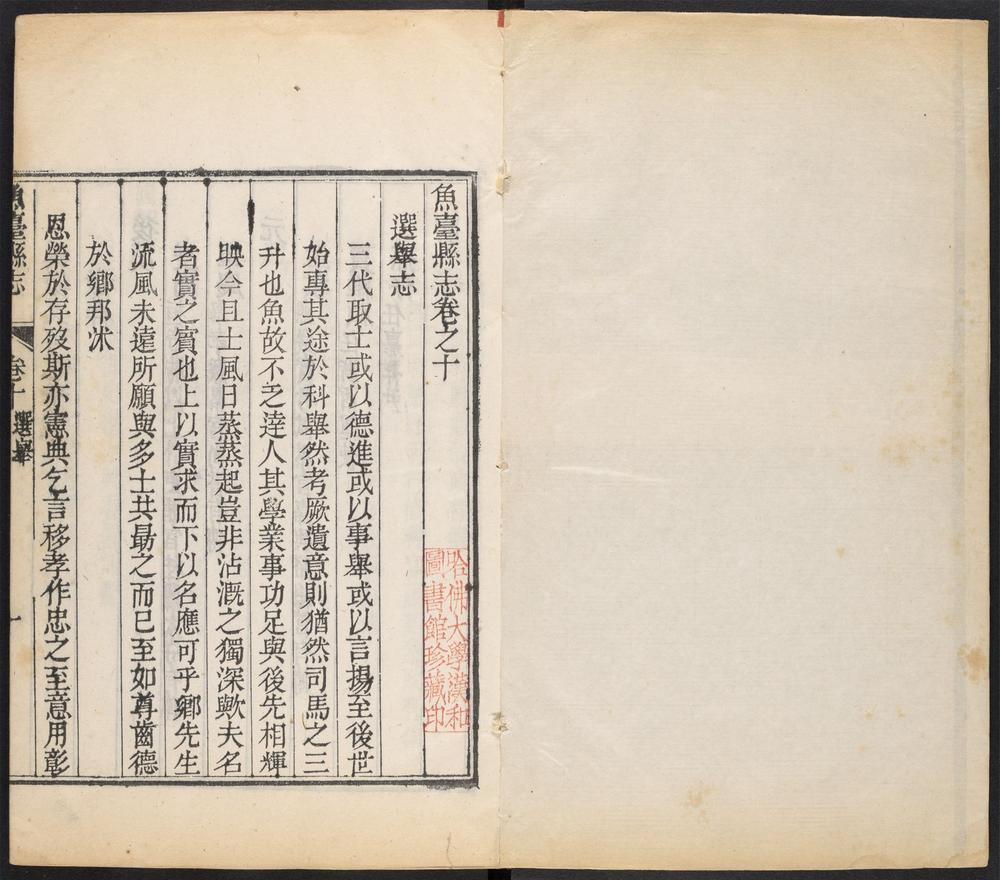 魚臺縣志卷之十
選舉志
三代取士或以德進或以事舉或以言揚至後世
始專其途於科舉然考厥遺意則猶然司馬之三
升也魚故不乏達人其學業事功足與後先相輝
映今且士風日蒸蒸起豈非沾溉之獨深歟夫名
者實之賓也上以實求而下以名應可乎鄉先生
流風未遠所願與多士共勗之而已至如尊齒德
於鄉邦沐
恩榮於存歿斯亦憲典乞言移孝作忠之至意用彰
魚臺縣志
卷十
選舉
一
哈佛大學漢和
圖書館珍藏印